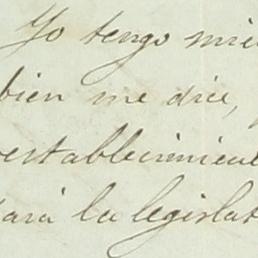 Yo tengo mie
bien me dice,
establecimien
ará la legislat